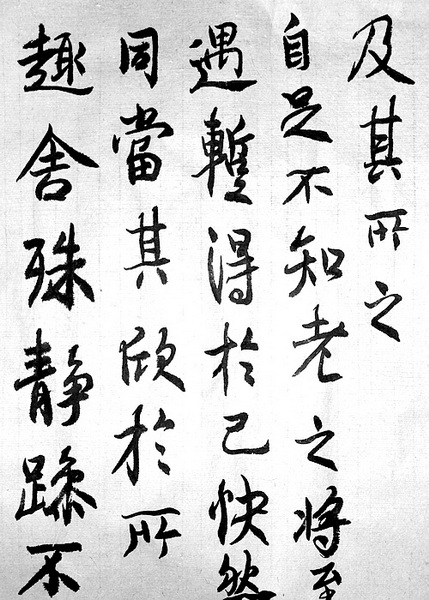 趣舍殊静躁不
同當其欣於所
遇暫得於己快然
自足不知老之将至
及其所之